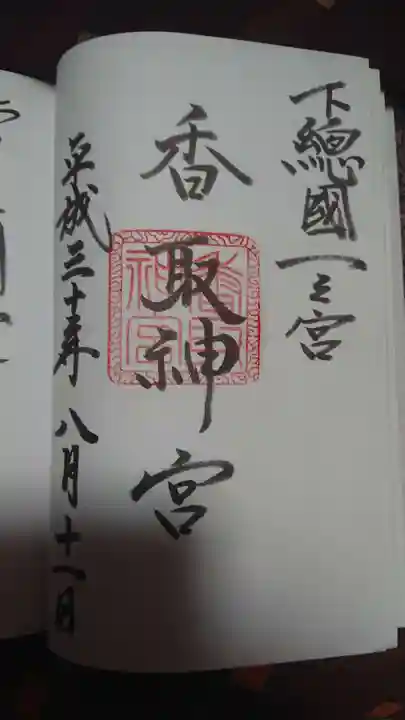 下總國一之宮
香取神宮
平成三十年八月十一日
香取
神宮